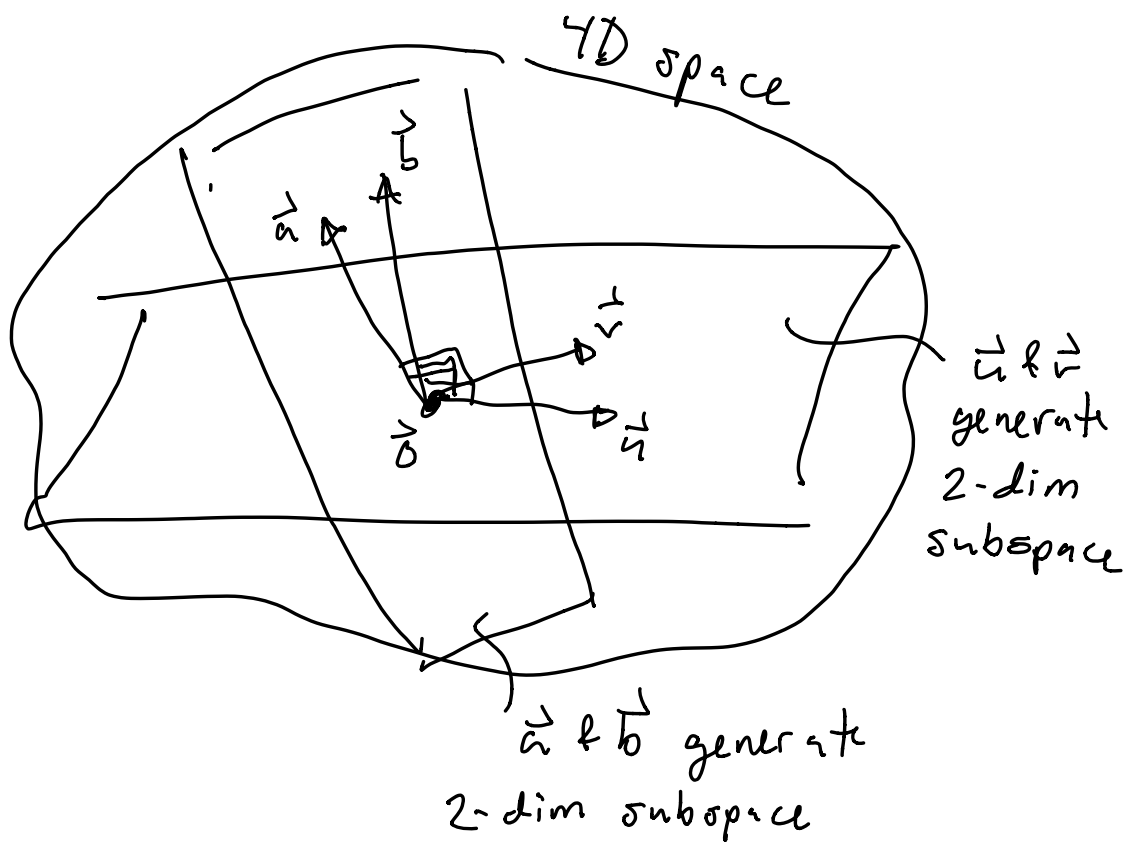 4D space
b⃗
a⃗
v⃗
0⃗
u⃗
u⃗ & v⃗
generate
2-dim
subspace
a⃗ & b⃗ generate
2-dim subspace